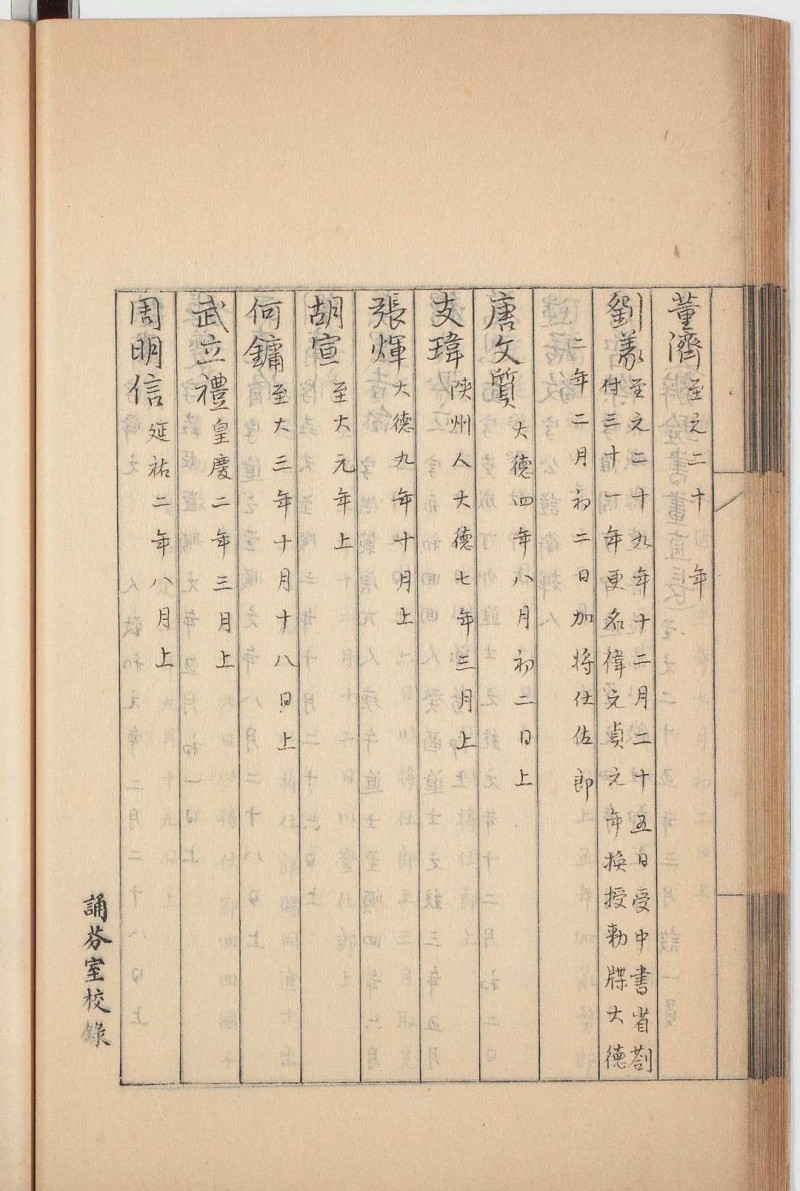 董濟至元二十　年
劉義至元二十九年十二月二十五日受中書省劄
付三十一年更名偉元貞元年換授勅牒大德
二年二月初二日加將仕佐郎
唐文質大德四年八月初二日上
支瑋陜州人大德七年三月上
張煇大德九年十月上
胡宣至大元年上
何鏞至大三年十月十八日上
武立禮皇慶二年三月上
周明信延祐二年八月上
誦芬室校錄